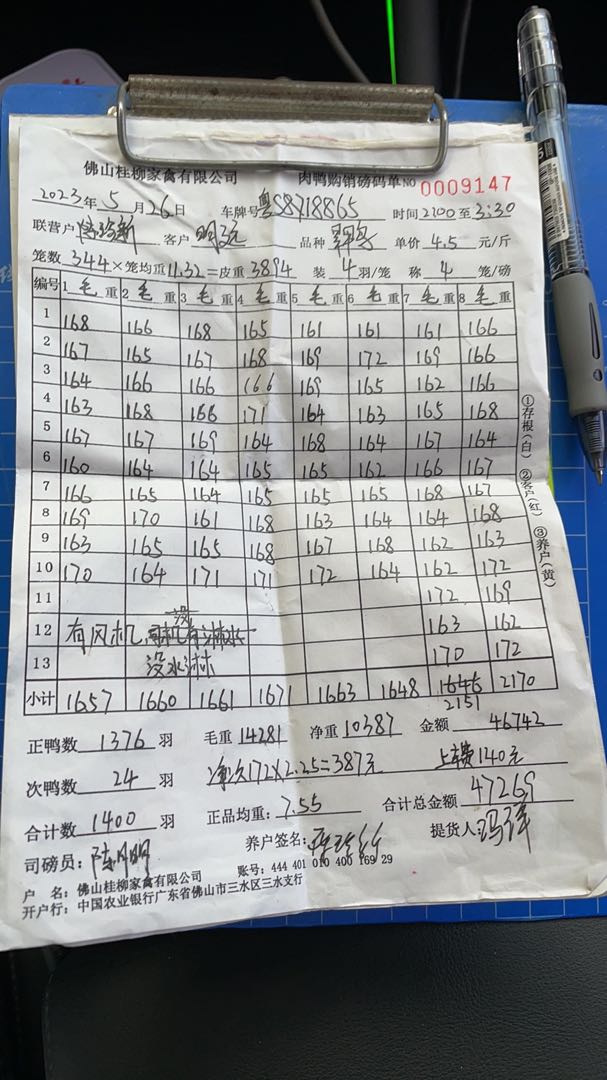 佛山桂柳家禽有限公司 肉鸭购销磅码单 NO 0009147
2023年 5 月 26日 车牌号 粤S8718865 时间 2100 至 3:30
联营户 客户 品种 单价 4.5 元/斤
笼数 344 × 笼均重 11.32 = 皮重 3894 装 4 羽/笼 称 4 笼/磅
编号 1 毛 重 2 毛 重 3 毛 重 4 毛 重 5 毛 重 6 毛 重 7 毛 重 8 毛 重
1 168 166 168 165 161 161 161 166
2 167 165 167 168 169 172 169 166
3 164 166 166 166 169 165 162 166
4 163 168 166 171 164 163 165 168
5 167 167 169 164 168 164 167 164
6 160 164 164 165 165 162 166 167
7 166 165 164 165 165 165 168 167
8 169 170 161 168 163 164 164 168
9 163 165 165 168 167 168 162 163
10 170 164 171 171 172 164 162 172
11 172 169
12 有风机 没 163 162
13 没水淋 170 172
小计 1657 1660 1661 1671 1663 1648 1646 2170
2151
正鸭数 1376 羽 毛重 14281 净重 10387 金额 46742
次鸭数 24 羽 净欠172×2.25=387元 上车费140元
合计数 1400 羽 正品均重: 7.55 合计总金额 47269
司磅员: 养户签名: 提货人
户 名: 佛山桂柳家禽有限公司 账号: 444 401 010 400 169 29
开户行: 中国农业银行广东省佛山市三水区三水支行
①存根(白) ②客户(红) ③养户(黄)